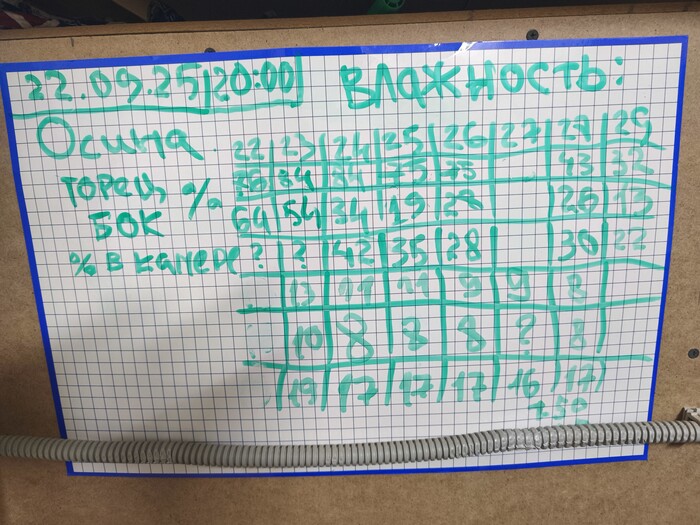 22.09.25 20:00 ВЛАЖНОСТЬ:
Осина 22 23 24 25 26 27 28 29
торец % 84 84 75 73 43 32
БОК 64 54 34 19 28 26 13
% в камере ? ? 42 35 28 30 22
13 11 11 9 9 8
10 8 8 8 ? 8
19 17 17 17 16 17